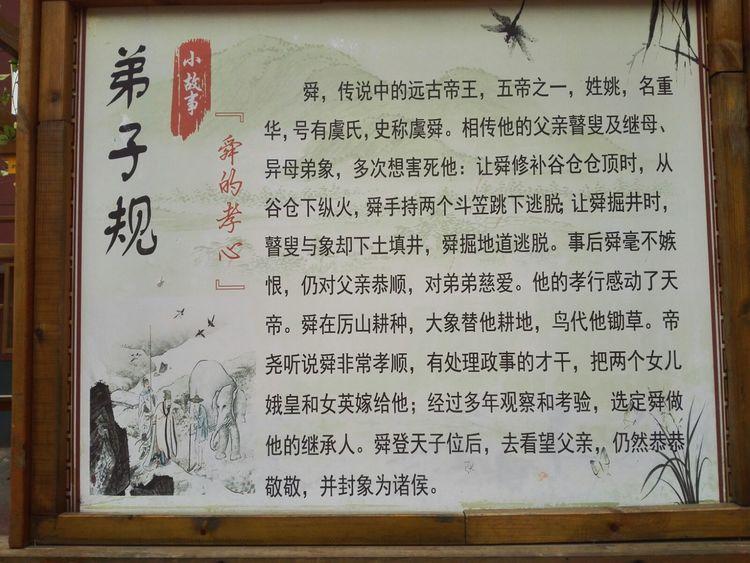 弟子规
小故事
『舜的孝心』
舜，传说中的远古帝王，五帝之一，姓姚，名重
华，号有虞氏，史称虞舜。相传他的父亲瞽叟及继母、
异母弟象，多次想害死他：让舜修补谷仓仓顶时，从
谷仓下纵火，舜手持两个斗笠跳下逃脱；让舜掘井时，
瞽叟与象却下土填井，舜掘地道逃脱。事后舜毫不嫉
恨，仍对父亲恭顺，对弟弟慈爱。他的孝行感动了天
帝。舜在厉山耕种，大象替他耕地，鸟代他锄草。帝
尧听说舜非常孝顺，有处理政事的才干，把两个女儿
娥皇和女英嫁给他；经过多年观察和考验，选定舜做
他的继承人。舜登天子位后，去看望父亲，仍然恭恭
敬敬，并封象为诸侯。